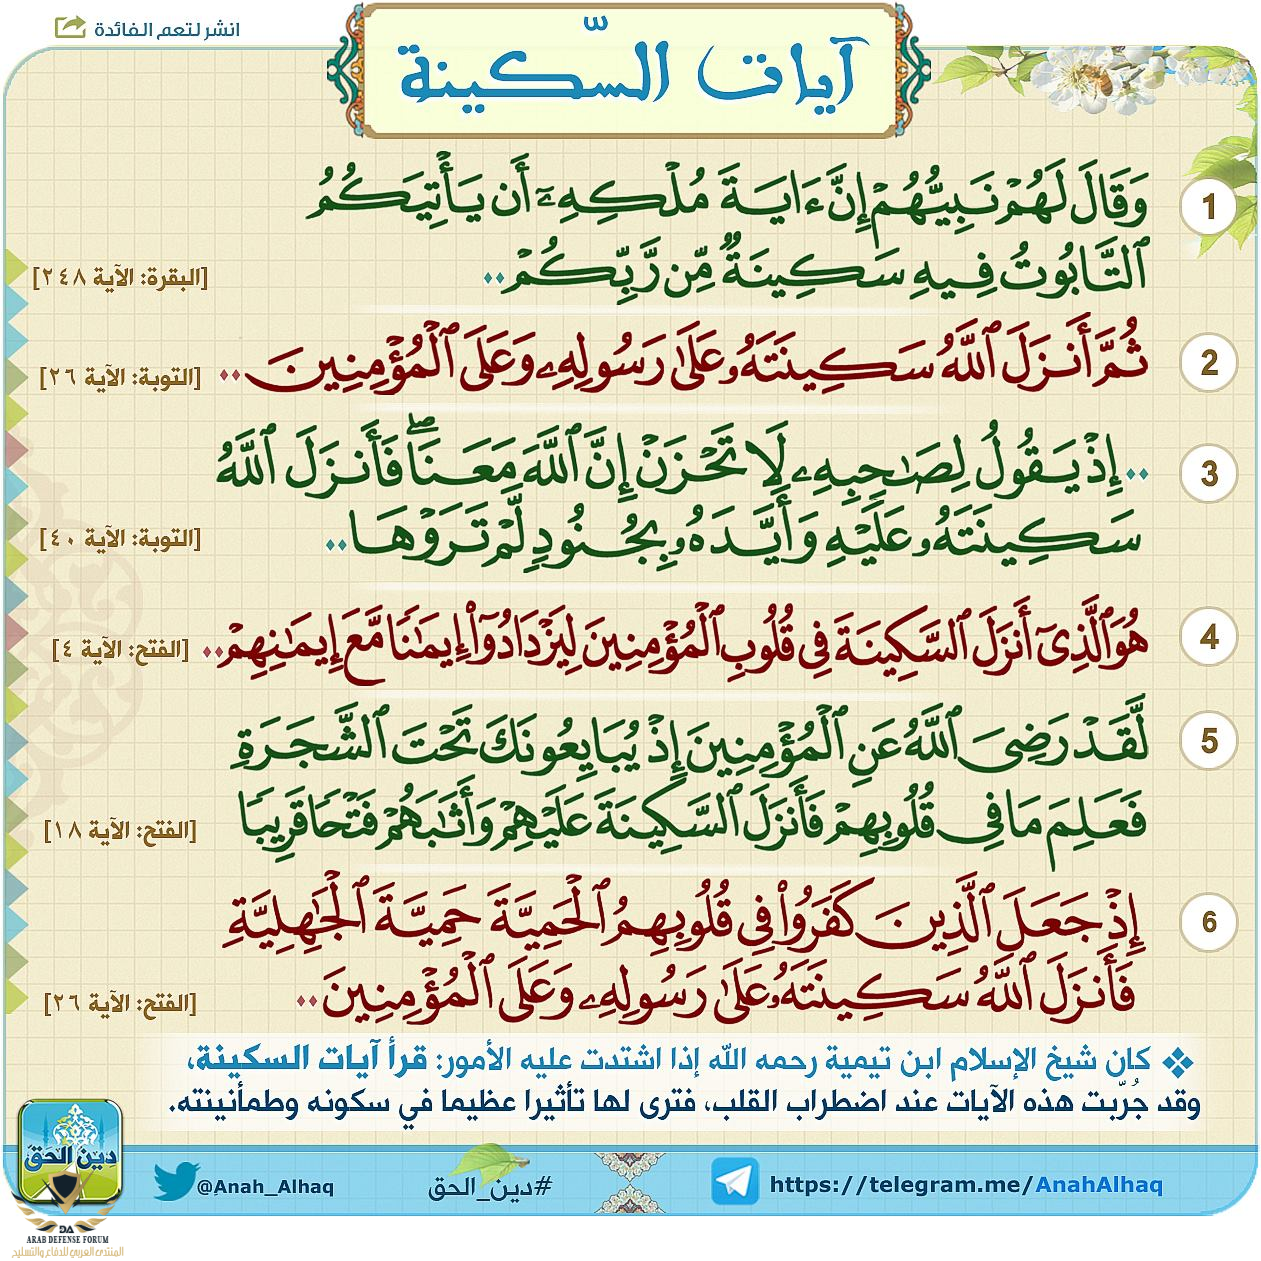 انشر لتعم الفائدة
آيات السّكينة
1
وَقَالَ لَهُمْ نَبِيُّهُمْ إِنَّ ءَايَةَ مُلْكِهِۦٓ أَن يَأْتِيَكُمُ
ٱلتَّابُوتُ فِيهِ سَكِينَةٌ مِّن رَّبِّكُمْ..
[البقرة: الآية ٢٤٨]
2
ثُمَّ أَنزَلَ ٱللَّهُ سَكِينَتَهُۥ عَلَىٰ رَسُولِهِۦ وَعَلَى ٱلْمُؤْمِنِينَ..
[التوبة: الآية ٢٦]
3
..إِذْ يَقُولُ لِصَـٰحِبِهِۦ لَا تَحْزَنْ إِنَّ ٱللَّهَ مَعَنَاۖ فَأَنزَلَ ٱللَّهُ
سَكِينَتَهُۥ عَلَيْهِ وَأَيَّدَهُۥ بِجُنُودٍ لَّمْ تَرَوْهَا..
[التوبة: الآية ٤٠]
4
هُوَ ٱلَّذِىٓ أَنزَلَ ٱلسَّكِينَةَ فِى قُلُوبِ ٱلْمُؤْمِنِينَ لِيَزْدَادُوٓا۟ إِيمَـٰنًا مَّعَ إِيمَـٰنِهِمْ..
[الفتح: الآية ٤]
5
لَّقَدْ رَضِىَ ٱللَّهُ عَنِ ٱلْمُؤْمِنِينَ إِذْ يُبَايِعُونَكَ تَحْتَ ٱلشَّجَرَةِ
فَعَلِمَ مَا فِى قُلُوبِهِمْ فَأَنزَلَ ٱلسَّكِينَةَ عَلَيْهِمْ وَأَثَـٰبَهُمْ فَتْحًا قَرِيبًا
[الفتح: الآية ١٨]
6
إِذْ جَعَلَ ٱلَّذِينَ كَفَرُوا۟ فِى قُلُوبِهِمُ ٱلْحَمِيَّةَ حَمِيَّةَ ٱلْجَـٰهِلِيَّةِ
فَأَنزَلَ ٱللَّهُ سَكِينَتَهُۥ عَلَىٰ رَسُولِهِۦ وَعَلَى ٱلْمُؤْمِنِينَ..
[الفتح: الآية ٢٦]
❖ كان شيخ الإسلام ابن تيمية رحمه الله إذا اشتدت عليه الأمور: قرأ آيات السكينة،
وقد جُرّبت هذه الآيات عند اضطراب القلب، فترى لها تأثيرا عظيما في سكونه وطمأنينته.
https://telegram.me/AnahAlhaq
#دين_الحق
@Anah_Alhaq
دين الحق
ARAB DEFENSE FORUM
المنتدى العربي للدفاع والتسليح